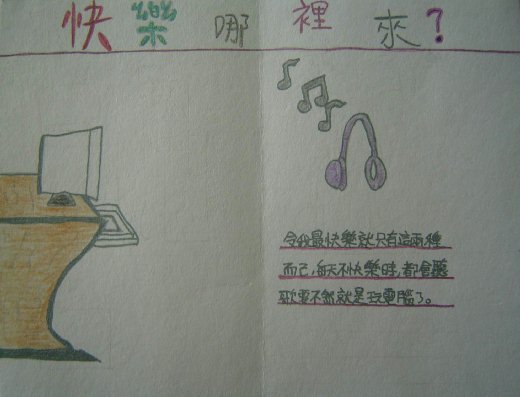 快樂哪裡來？
令我最快樂就只有這兩種
而已，每天不快樂時，都會聽
歌要不然就是玩電腦了。